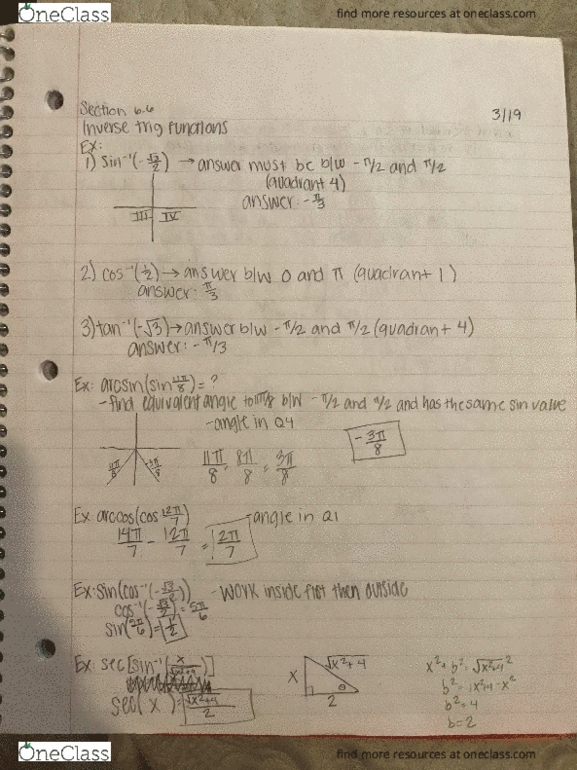 OneClass
find more resources at oneclass.com
Section 6.6
3/19
Inverse trig functions
Ex:
1) sin⁻¹(-√3/2) → answer must be b/w -π/2 and π/2
(quadrant 4)
answer: -π/3
III IV
2) cos⁻¹(1/2) → answer b/w 0 and π (quadrant 1)
answer: π/3
3) tan⁻¹(-√3) → answer b/w -π/2 and π/2 (quadrant 4)
answer: -π/3
Ex: arcsin(sin 11π/8) = ?
- find equivalent angle to 11π/8 b/w -π/2 and π/2 and has the same sin value
- angle in Q4
11π/8 -3π/8
11π/8 - 8π/8 = 3π/8
-3π/8
Ex: arccos(cos 12π/7) - angle in Q1
14π/7 - 12π/7 = 2π/7
Ex: sin(cos⁻¹(-√3/2)) - work inside first then outside
cos⁻¹(-√3/2) = 5π/6
sin(5π/6) = 1/2
Ex: sec[sin⁻¹(x/√x²+4)]
sec(x) = √x²+4/2
x √x²+4
θ
2
x² + b² = √x²+4²
b² = x²+4 - x²
b² = 4
b = 2
OneClass
find more resources at oneclass.com